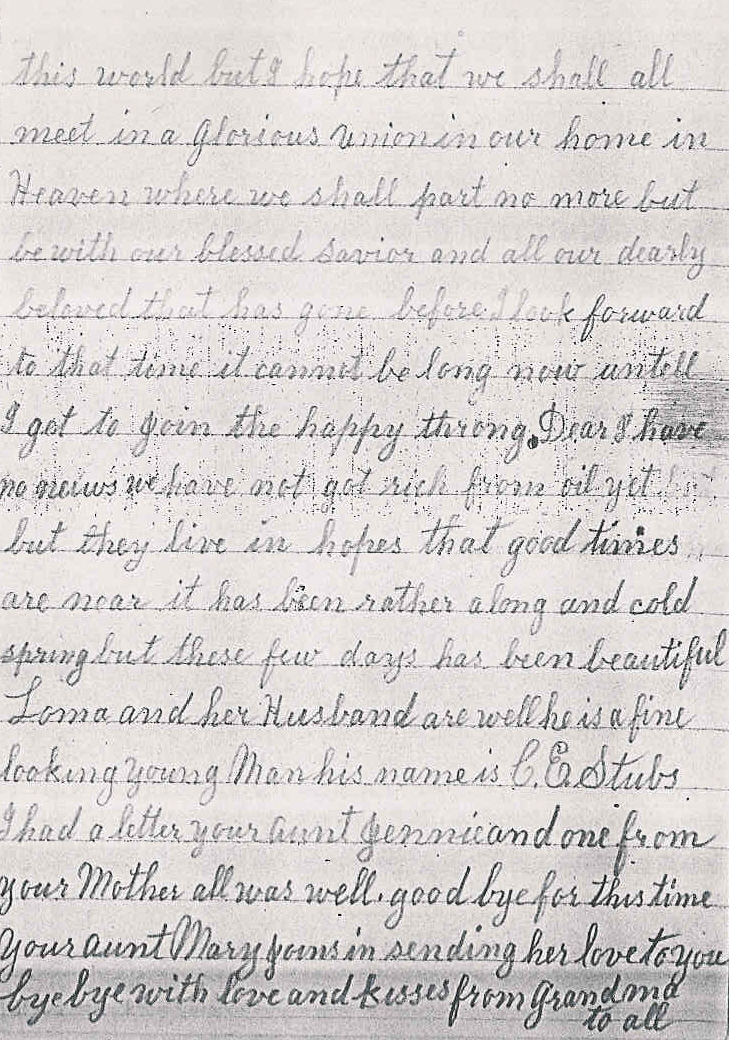 this world but I hope that we shall all
meet in a Glorious Union in our home in
Heaven where we shall part no more but
be with our blessed Savior and all our dearly
beloved that has gone before I look forward
to that time it cannot be long now untell
I got to join the happy throng. Dear I have
no neiws we have not got rich from oil yet
but they live in hopes that good times
are near it has been rather a long and cold
spring but these few days has been beautiful
Loma and her Husband are well he is a fine
looking young Man his name is C.E. Stubs
I had a letter your aunt Jennie and one from
your Mother all was well. good bye for this time
your aunt Mary joins in sending her love to you
bye bye with love and kisses from Grandma
to all